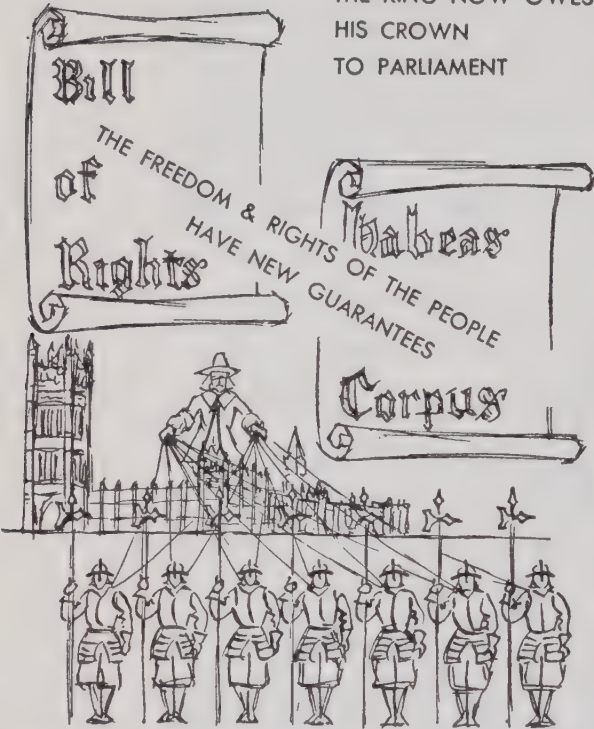 THE KING NOW OWES
HIS CROWN
TO PARLIAMENT
Bill
of
Rights
THE FREEDOM & RIGHTS OF THE PEOPLE
HAVE NEW GUARANTEES
Habeas
Corpus